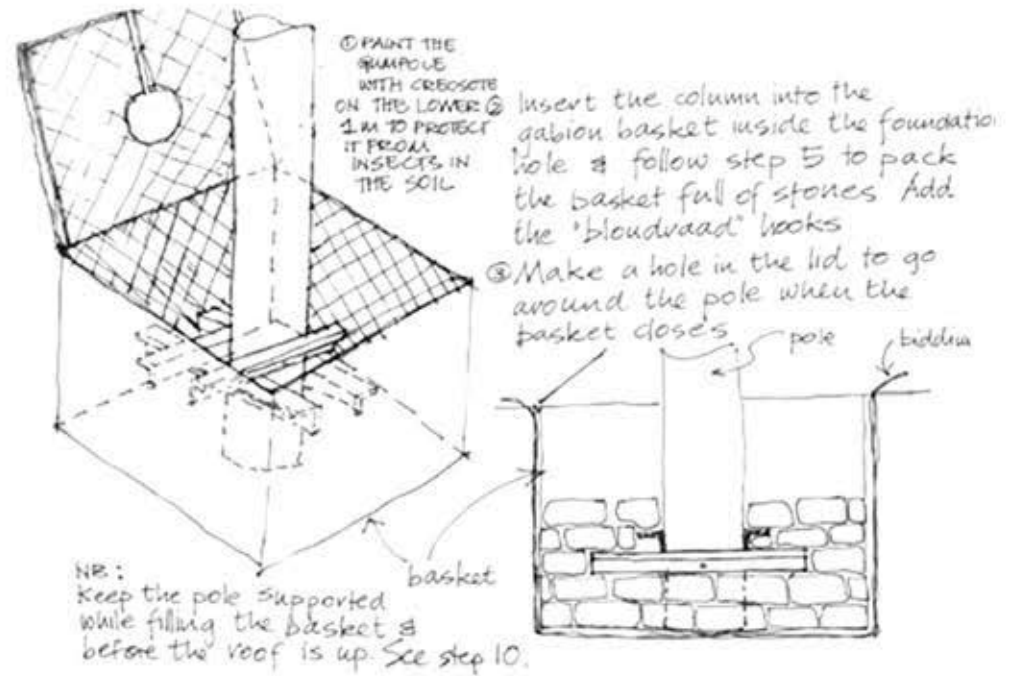 ① PAINT THE
GUMPOLE
WITH CREOSOTE
ON THE LOWER
1 m TO PROTECT
IT FROM
INSECTS IN
THE SOIL
② Insert the column into the
gabion basket inside the foundatio
hole & follow step 5 to pack
the basket full of stones Add
the "bloudraad" hooks
③ Make a hole in the lid to go
around the pole when the
basket closes
pole
biddim
basket
NB:
Keep the pole supported
while filling the basket &
before the roof is up. See step 10.